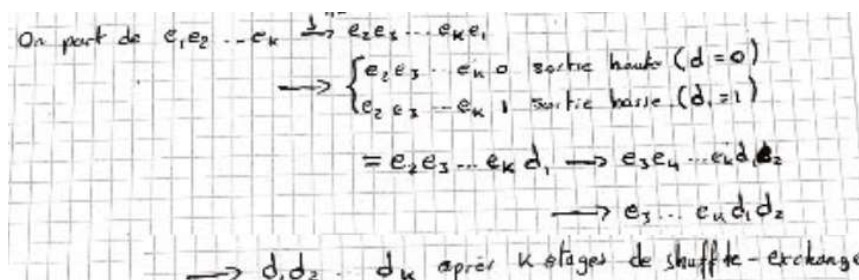 On part de e₁e₂ ... eₖ → e₂e₃ ... eₖe₁
→ { e₂e₃ ... eₖ 0 sortie haute (d = 0)
e₂e₃ ... eₖ 1 sortie basse (d₁ = 1)
= e₂e₃ ... eₖ d₁ → e₃e₄ ... eₖd₁e₂
→ e₃ ... eₖd₁d₂
→ d₁d₂ ... dₖ après K étages de shuffle-exchange